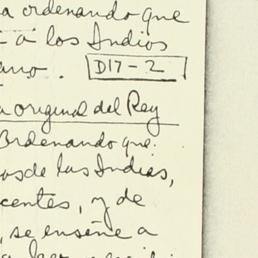 a ordenando que
a los Indios
ano. D17-2
a original del Rey
Ordenando que
os de las Indias,
centes, y de
, se enseñe a